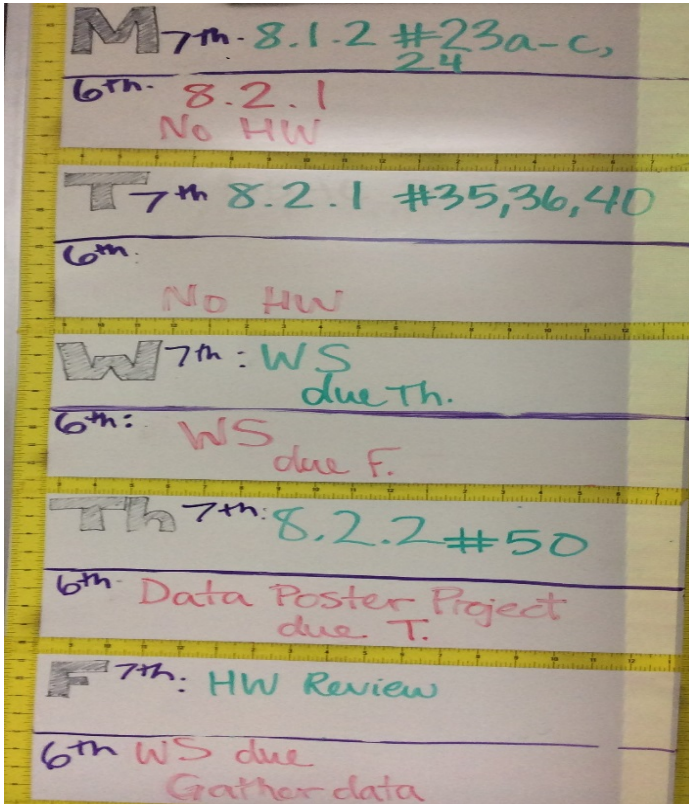 M 7th. 8.1.2 #23a-c,
24
6th. 8.2.1
No HW
T 7th 8.2.1 #35,36,40
6th:
No HW
W 7th: WS
due Th.
6th: WS
due F.
Th 7th: 8.2.2 #50
6th. Data Poster Project
due T.
F 7th: HW Review
6th WS due
Gather data